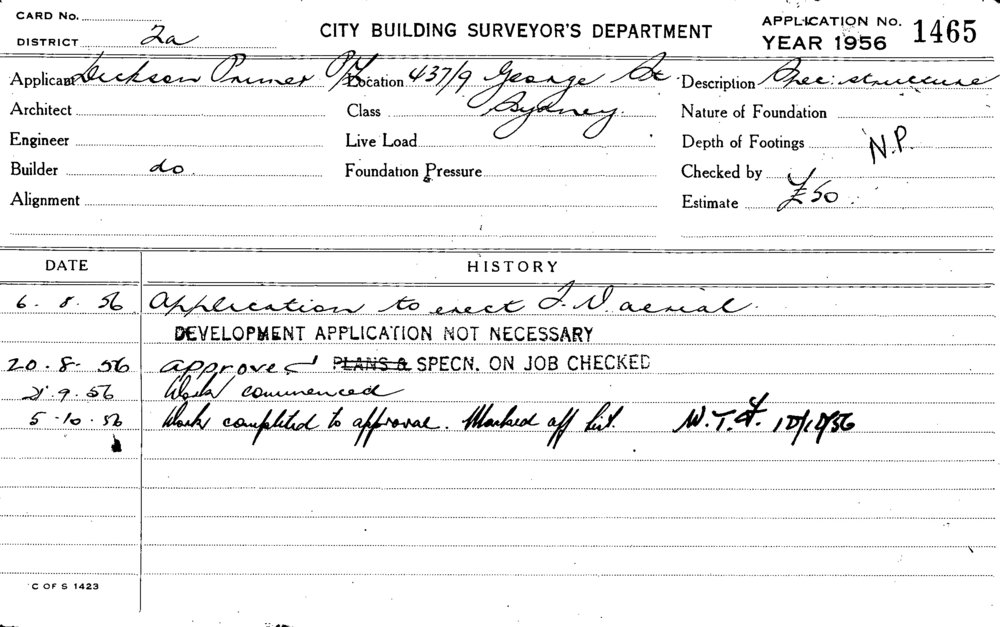 CARD No.
DISTRICT 2a
CITY BUILDING SURVEYOR'S DEPARTMENT
APPLICATION No. 1465
YEAR 1956
Applicant Dickson Primer P/L
Location 437/9 George St.
Sydney.
Description Spec: structure
Architect
Class
Nature of Foundation
Engineer
Live Load
Depth of Footings N.P.
Builder do
Foundation Pressure
Checked by
Alignment
Estimate £50
DATE HISTORY
6. 8. 56 Application to erect T.V aerial.
DEVELOPMENT APPLICATION NOT NECESSARY
20. 8. 56 approved PLANS & SPECN. ON JOB CHECKED
9. 56 Work commenced
5. 10. 56 Work completed to approval. Marked off list. 10/10/56
C OF S 1423